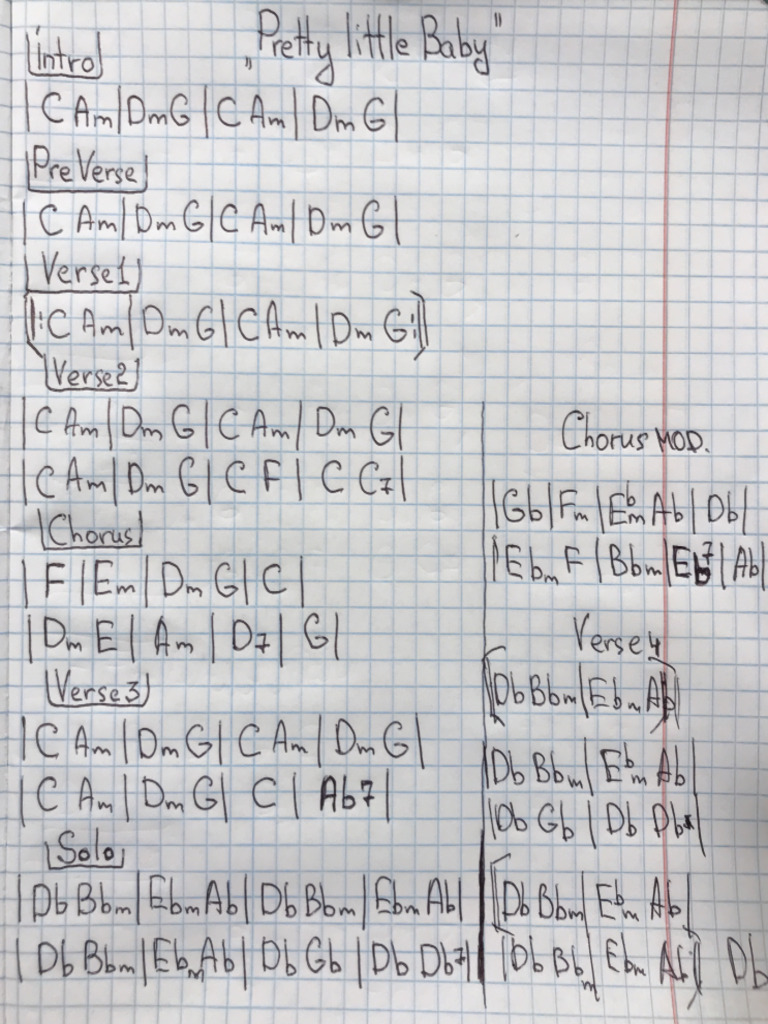 „Pretty little Baby"
Intro
| C Am | Dm G | C Am | Dm G |
Pre Verse
| C Am | Dm G | C Am | Dm G |
Verse 1
||: C Am | Dm G | C Am | Dm G :||
Verse 2
| C Am | Dm G | C Am | Dm G |
| C Am | Dm G | C F | C C7 |
Chorus
| F | Em | Dm G | C |
| Dm E | Am | D7 | G |
Verse 3
| C Am | Dm G | C Am | Dm G |
| C Am | Dm G | C | Ab7 |
Solo
| Db Bbm | Ebm Ab | Db Bbm | Ebm Ab |
| Db Bbm | Ebm Ab | Db Gb | Db Db7 |
Chorus MOD.
| Gb | Fm | Ebm Ab | Db |
| Ebm F | Bbm | Eb7 | Ab |
Verse 4
[ Db Bbm | Ebm Ab ]
| Db Bbm | Ebm Ab |
| Db Gb | Db |
[ Db Bbm | Ebm Ab |
| Db Bbm | Ebm Ab ] Db